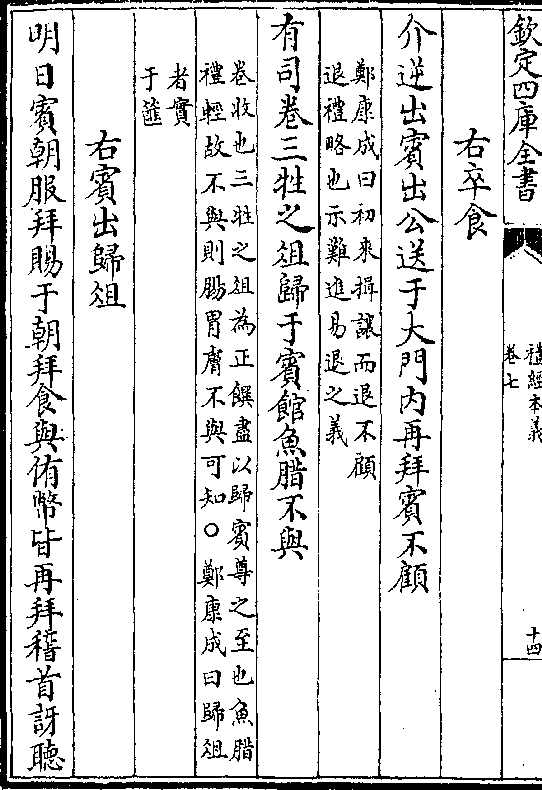 欽定四庫全書
禮經本義
卷七
十四
右卒食
介逆出賓出公送于大門内再拜賓不顧
鄭康成曰初來揖讓而退不顧
退禮略也示難進易退之義
有司卷三牲之俎歸于賓館魚腊不與
卷收也三牲之俎為正饌盡以歸賓尊之至也魚腊
禮輕故不與則腸胃膚不與可知○鄭康成曰歸俎
者實
于篚
右賓出歸俎
明日賓朝服拜賜于朝拜食與侑幣皆再拜稽首訝聽